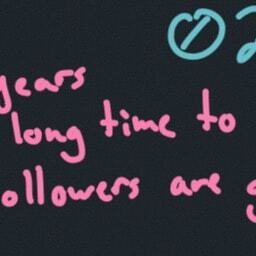 years
long time to
ollowers are